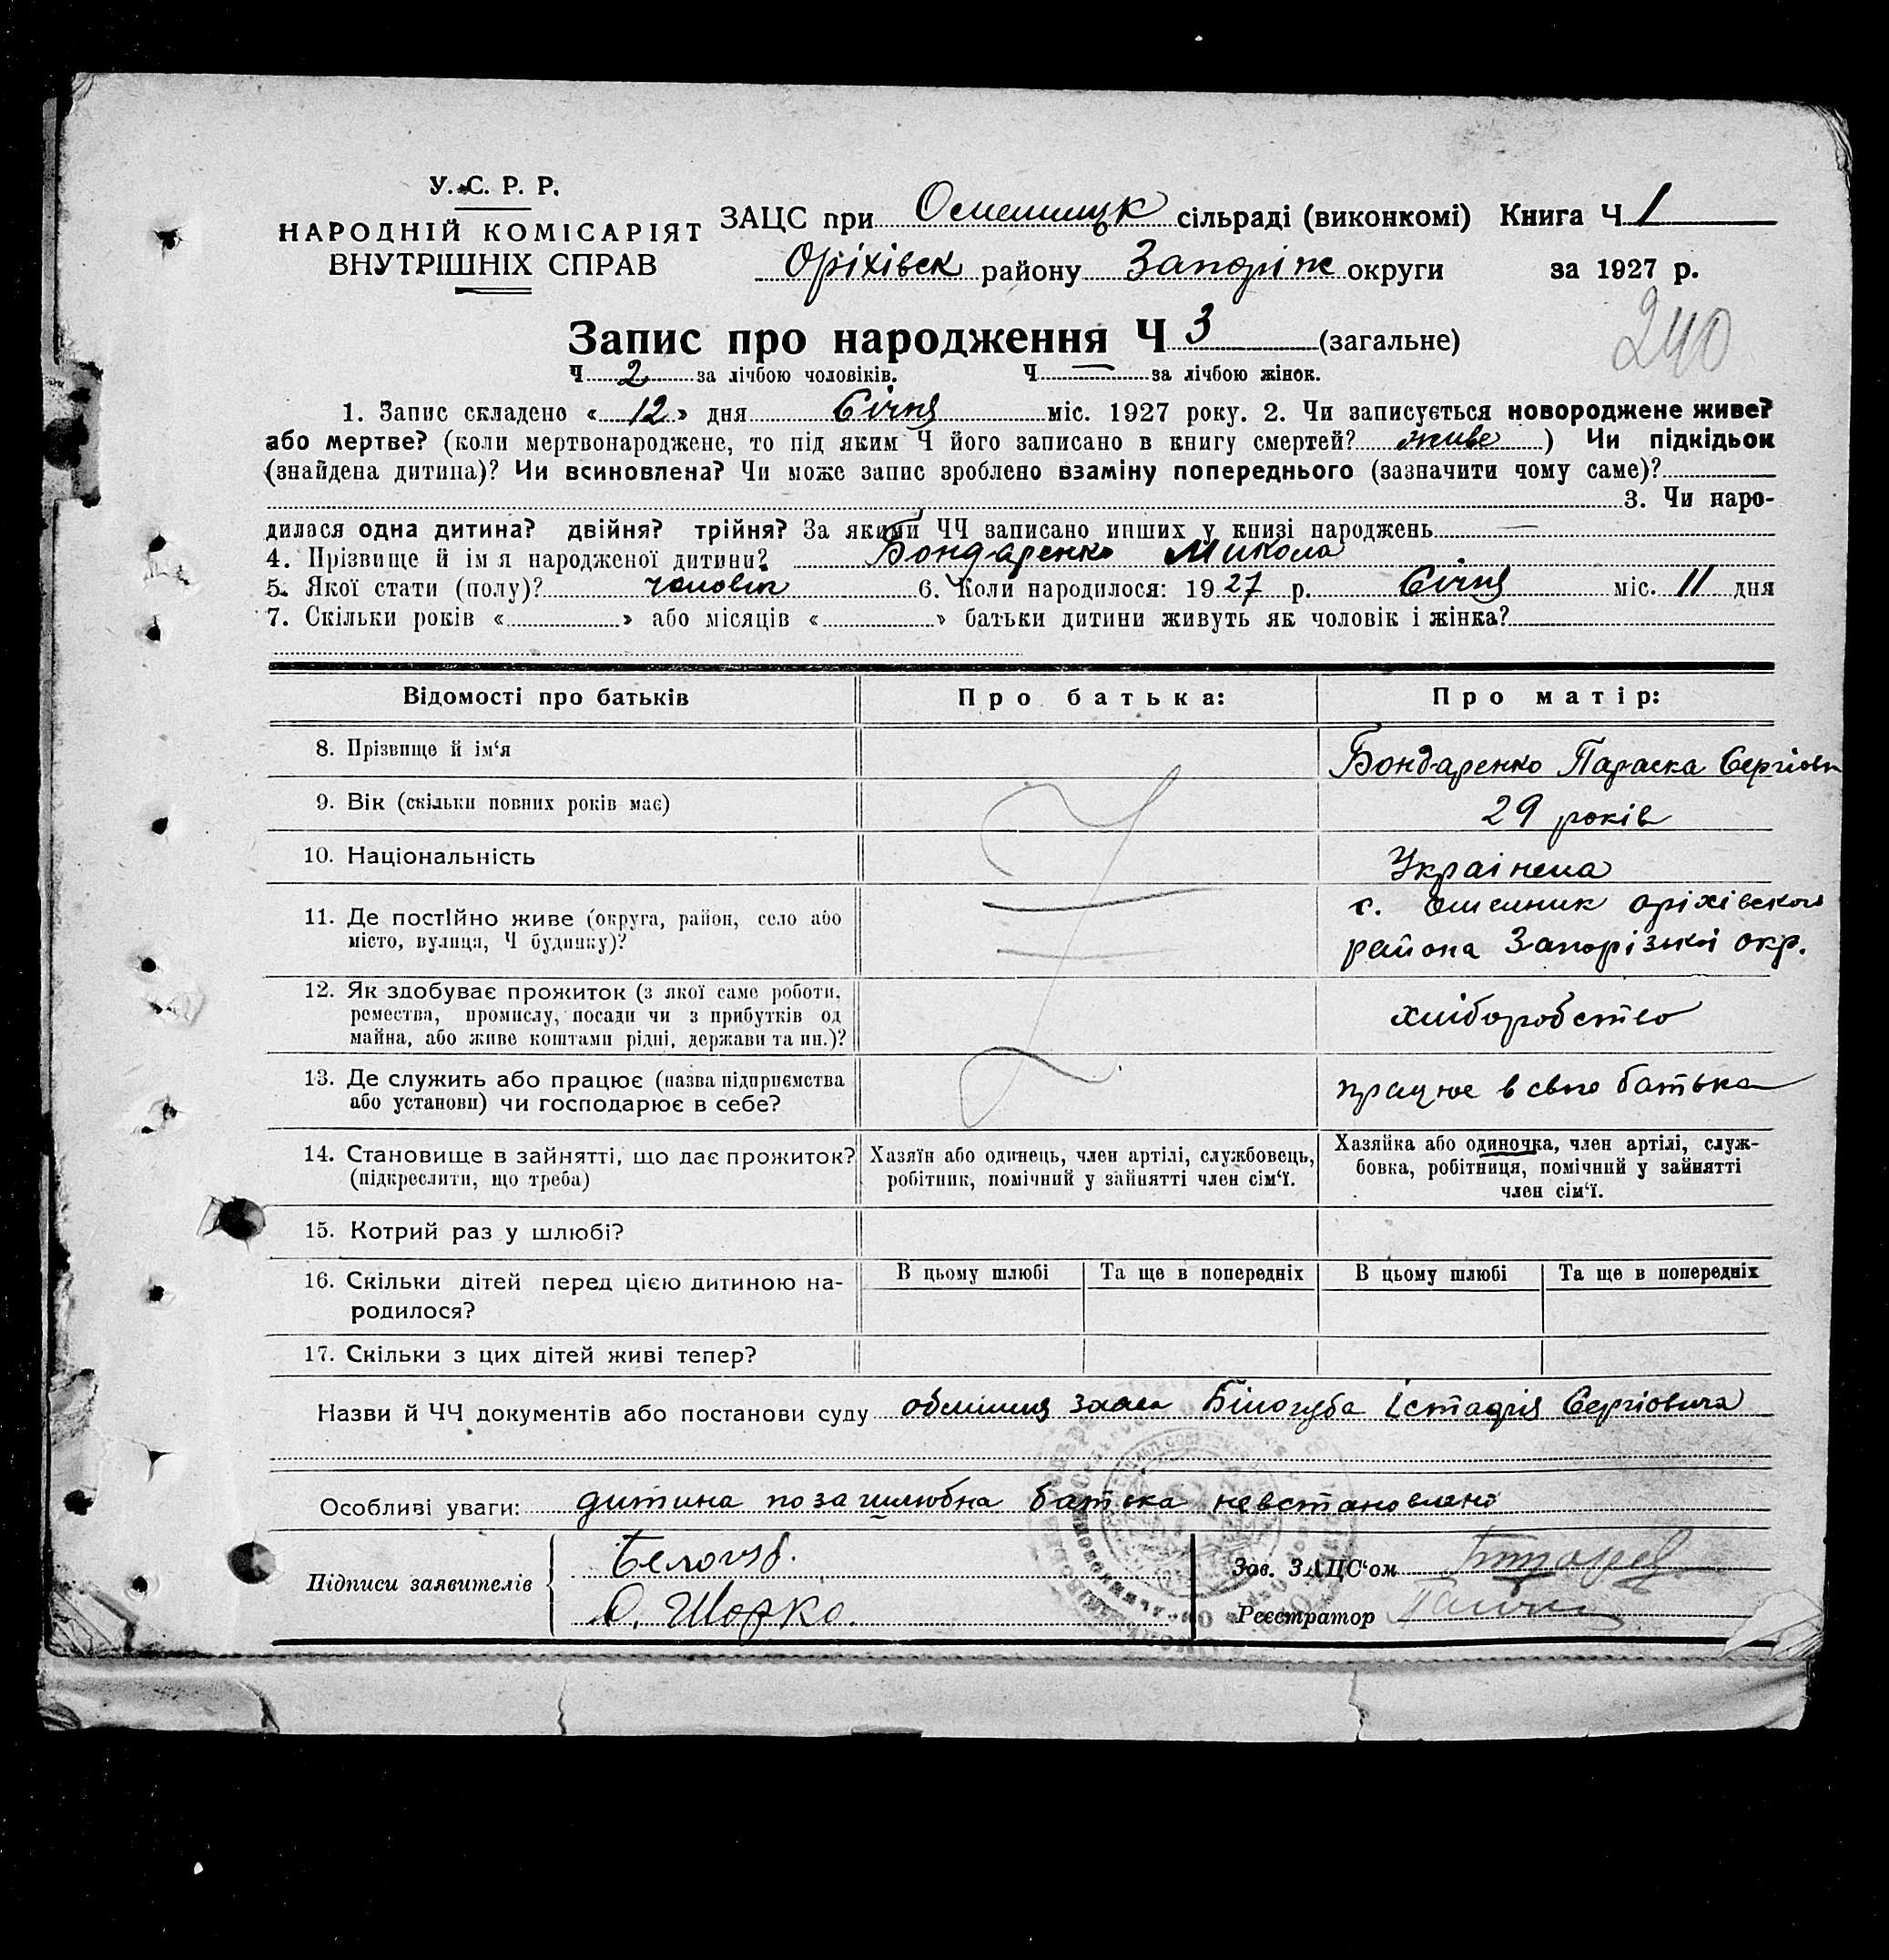 У. С. Р. Р.
НАРОДНІЙ КОМІСАРІЯТ
ВНУТРІШНІХ СПРАВ
ЗАЦС при сільраді (виконкомі) Книга Ч 1
Оріхівськ району Запоріж округи за 1927 р.
240
Запис про народження Ч 3 (загальне)
Ч 2 за лічбою чоловіків. Ч — за лічбою жінок.
1. Запис складено « 12 » дня Січня міс. 1927 року. 2. Чи записується новороджене живе?
або мертве? (коли мертвонароджене, то під яким Ч його записано в книгу смертей? живе ) Чи підкідьок
(знайдена дитина)? Чи всиновлена? Чи може запис зроблено взаміну попереднього (зазначити чому саме)?
3. Чи наро-
дилася одна дитина? двійня? трійня? За якими ЧЧ записано инших у книзі народжень —
4. Прізвище й ім я народженої дитини? Бондаренко Микола
5. Якої стати (полу)? чоловік 6. Коли народилося: 1927 р. Січня міс. 11 дня
7. Скільки років « » або місяців « » батьки дитини живуть як чоловік і жінка?
Відомості про батьків Про батька: Про матір:
8. Прізвище й ім‘я Бондаренко Параска Сергіовн
9. Вік (скільки повних років має) 29 років
10. Національність Українка
11. Де постійно живе (округа, район, село або
місто, вулиця, Ч будинку)?
с. оріхівского
района Запорізької окр.
12. Як здобуває прожиток (з якої саме роботи,
ремества, промислу, посади чи з прибутків од
майна, або живе коштами рідні, держави та ин.)?
хліборобство
13. Де служить або працює (назва підприємства
або установи) чи господарює в себе?
працює в свого батька
14. Становище в зайнятті, що дає прожиток?
(підкреслити, що треба)
Хазяїн або одинець, член артілі, службовець,
робітник, помічний у зайнятті член сім‘ї.
Хазяйка або одиночка, член артілі, служ-
бовка, робітниця, помічний у зайнятті
член сім‘ї.
15. Котрий раз у шлюбі?
16. Скільки дітей перед цією дитиною на-
родилося?
В цьому шлюбі Та ще в попередніх В цьому шлюбі Та ще в попередніх
17. Скільки з цих дітей живі тепер?
Назви й ЧЧ документів або постанови суду Білогуба Сергіовича
Особливі уваги: дитина позашлюбна батька невстановлено
Підписи заявителів
Белогуб.
Зав. ЗАЦС‘ом
Реєстратор